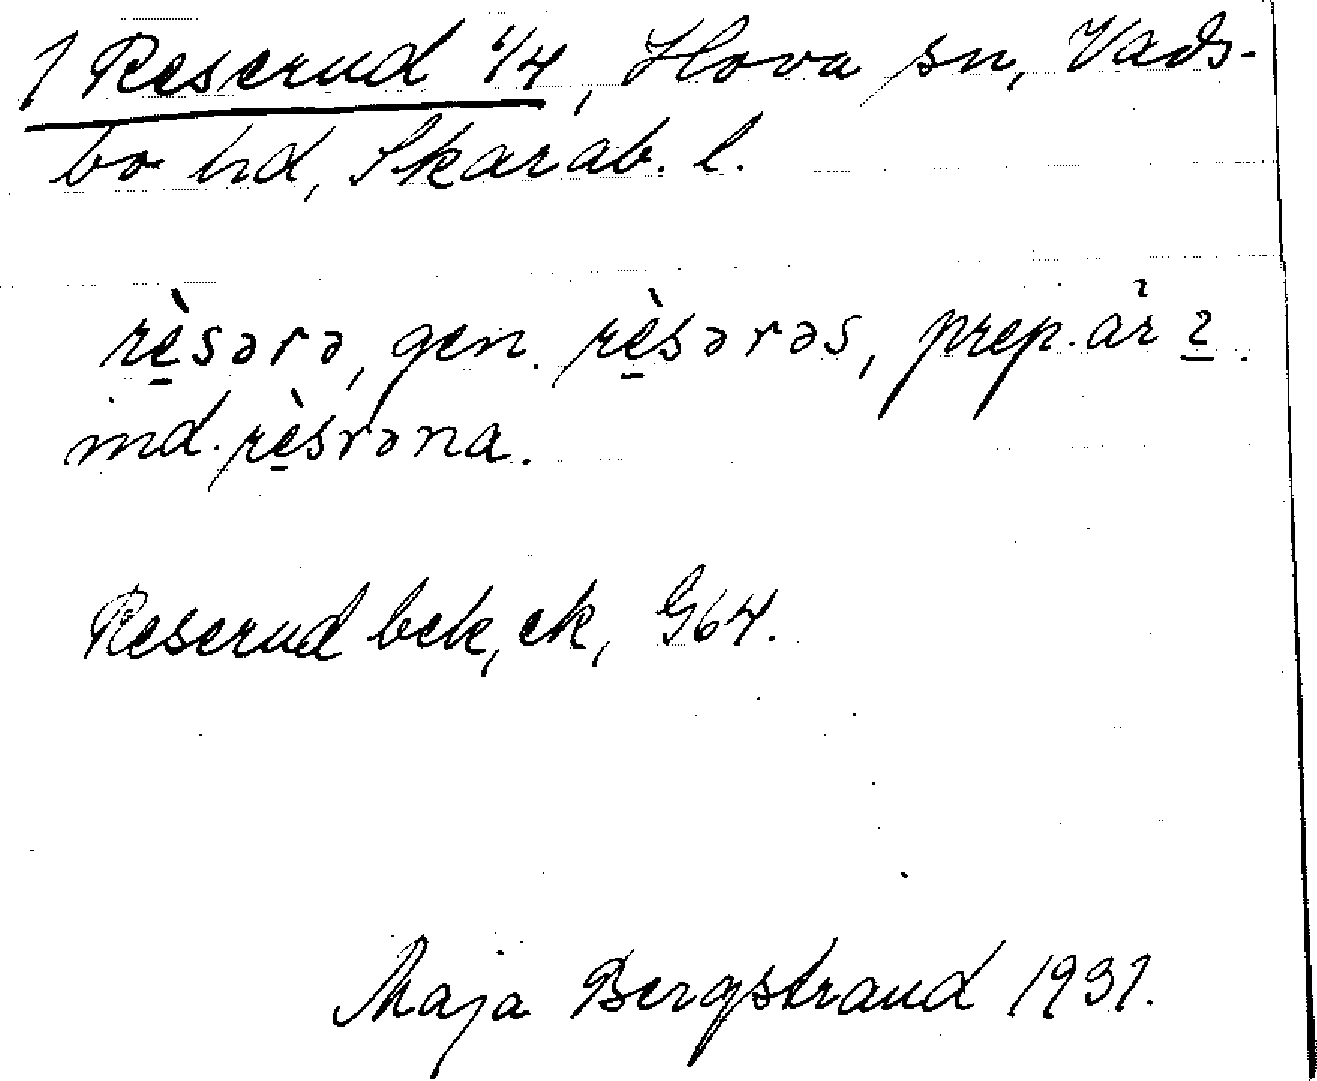 1 Reserud 1/4, Hova sn, Vads-
bo hd, Skarab. l.
rè̱sərə, gen. rè̱sərəs, prep. är
ind. rè̱srəna.
Reserud bek, ek, G64.
Maja Bergstrand 1931.